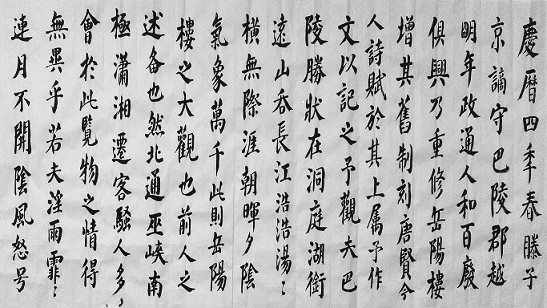 慶曆四年春滕子
京謫守巴陵郡越
明年政通人和百廢
俱興乃重修岳陽樓
增其舊制刻唐賢今
人詩賦於其上属予作
文以記之予觀夫巴
陵勝狀在洞庭湖銜
遠山吞長江浩浩湯〻
橫無際涯朝暉夕陰
氣象萬千此則岳陽
樓之大觀也前人之
述备也然北通巫峽南
極瀟湘遷客騷人多
會於此覽物之情得
無異乎若夫淫雨霏〻
連月不開陰風怒号